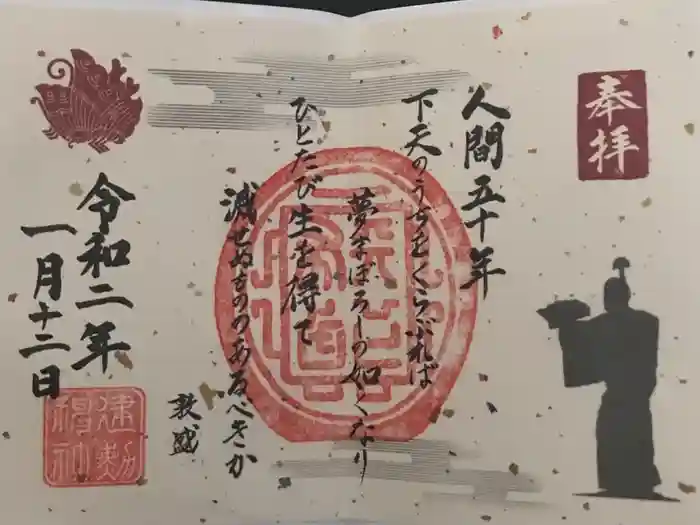 奉拝
人間五十年
下天のうちをくらぶれば
夢まぼろしの如くなり
ひとたび生を得て
滅せぬもののあるべきか
敦盛
令和二年
一月十二日
建勲
神